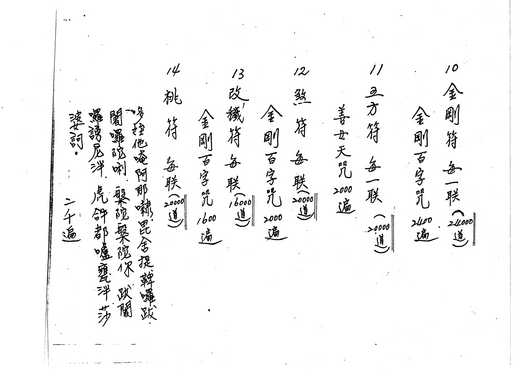 10 金剛符每一联(24000道)
金剛百字咒2400遍
11 五方符每一联(20000道)
善女天咒2000遍
12 煞符每联(20000道)
金剛百字咒2000遍
13 改穢符每联(16000道)
金剛百字咒1600遍
14 桃符每联(20000道)
哆姪他唵阿那隸毘舍提鞞囉跋
闍囉陀唎槃陀槃陀你跋闍
囉謗尼泮虎𤙖都嚧甕泮莎
婆訶 二千遍